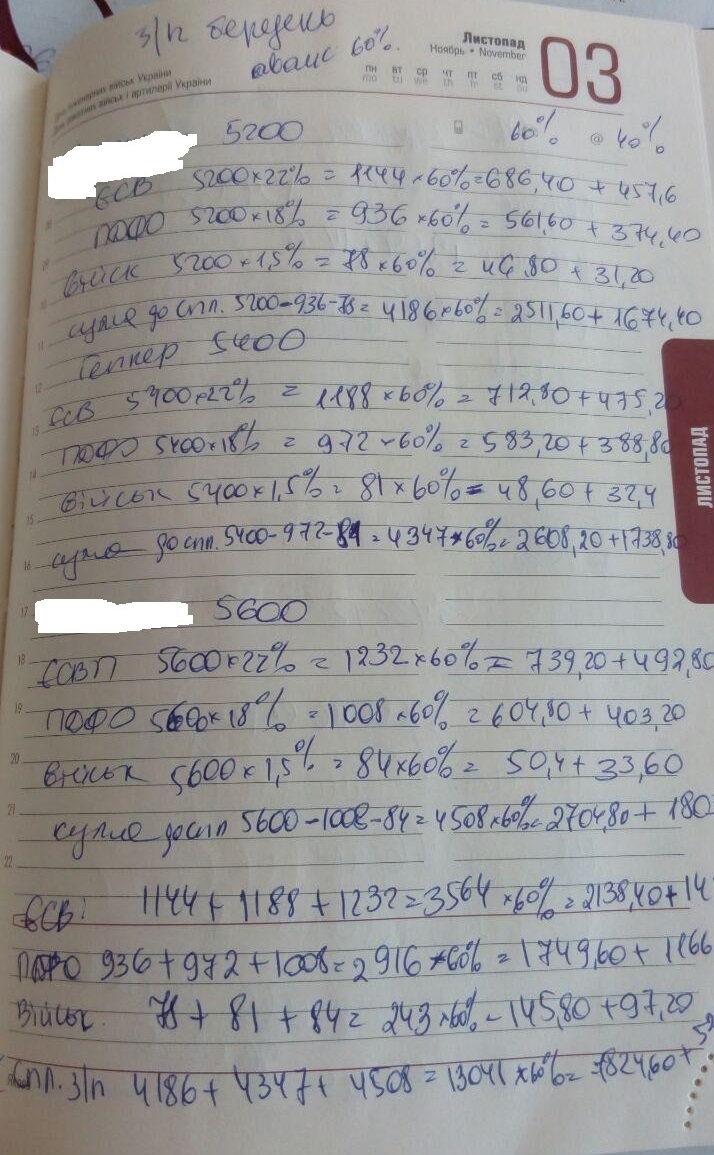 з/п березень
аванс 60%.
Листопад
Ноябрь • November
03
пн вт ср чт пт сб нд
mo tu we th fr st su
військ України
військ і артилерії України
5200 60% @ 40%
ЄСВ 5200×22% = 1144×60%=686,40 + 457,6
ПДФО 5200×18% = 936×60%= 561,60 + 374,40
Військ 5200×1,5% = 78×60% = 46,80 + 31,20
сума до спл. 5200-936-78= 4186×60%= 2511,60+1674,40
5400
ЄСВ 5400×22% = 1188×60% = 712,80+475,20
ПДФО 5400×18% = 972-60% = 583,20+388,80
Військ 5400×1,5%= 81×60%= 48,60+32,4
сума до спл. 5400-972-81=4347×60%=2608,20+1738,80
5600
ЄСВП 5600×22% = 1232×60%= 739,20+492,80
ПДФО 5600×18% =1008×60% = 604,80 + 403,20
Військ 5600×1,5%=84×60%= 50,4+33,60
сума до спл 5600-1008-84=4508×60%=2704,80+180
ЄСВ: 1144+1188+1232=3564×60%=2138,40+14
ПДФО 936+972+1008=2916×60%=1749,60+1166
Військ. 78+81+84=243×60%-145,80+97,20
Спл. з/п 4186+4347+4508=13041×60%=7824,60+5
ЛИСТОПАД
12
13
14
15
16
17
18
19
20
21
22